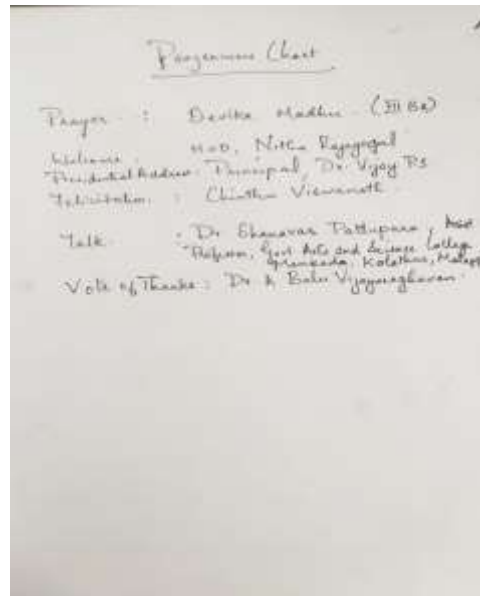 Programme Chart
Prayer : Devika Madhu (III BA)
Welcome : HOD, Nitha Rajagopal
Presidential Address : Principal, Dr. Vijoy PS
Felicitation : Chinthu Viswanath
Talk : Dr Shanavas Pattupara, Asst
Professor, Govt Arts and Science College
Kolathur,
Vote of Thanks : Dr A Balu Vijayaraghavan